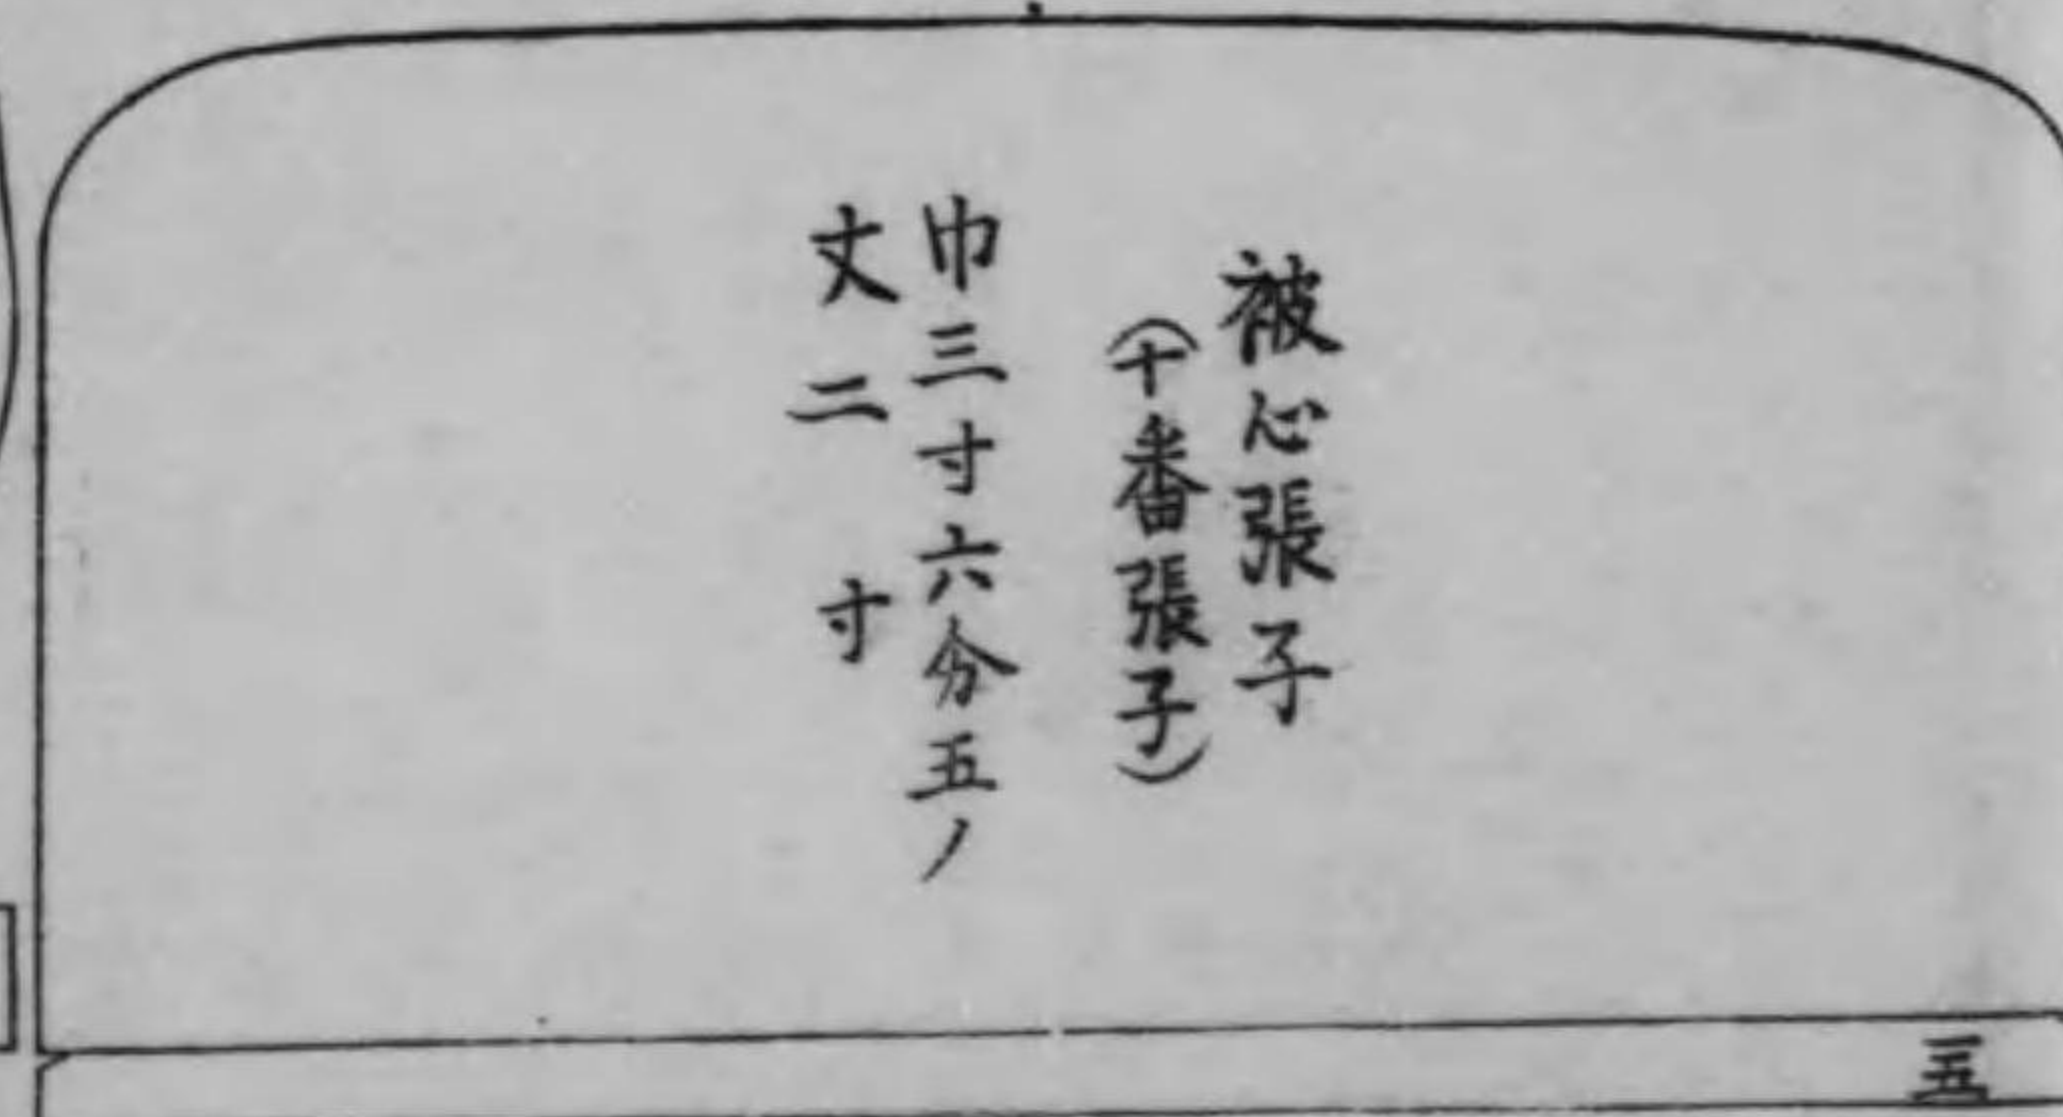 被心張子
(十番張子)
巾三寸六分五ノ
丈二寸